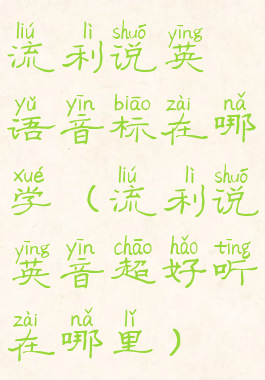 liú lì shuō yīng
流利说英
yǔ yīn biāo zài nǎ
语音标在哪
xué liú lì shuō
学（流利说
yīng yīn chāo hǎo tīng
英音超好听
zài nǎ lǐ
在哪里）